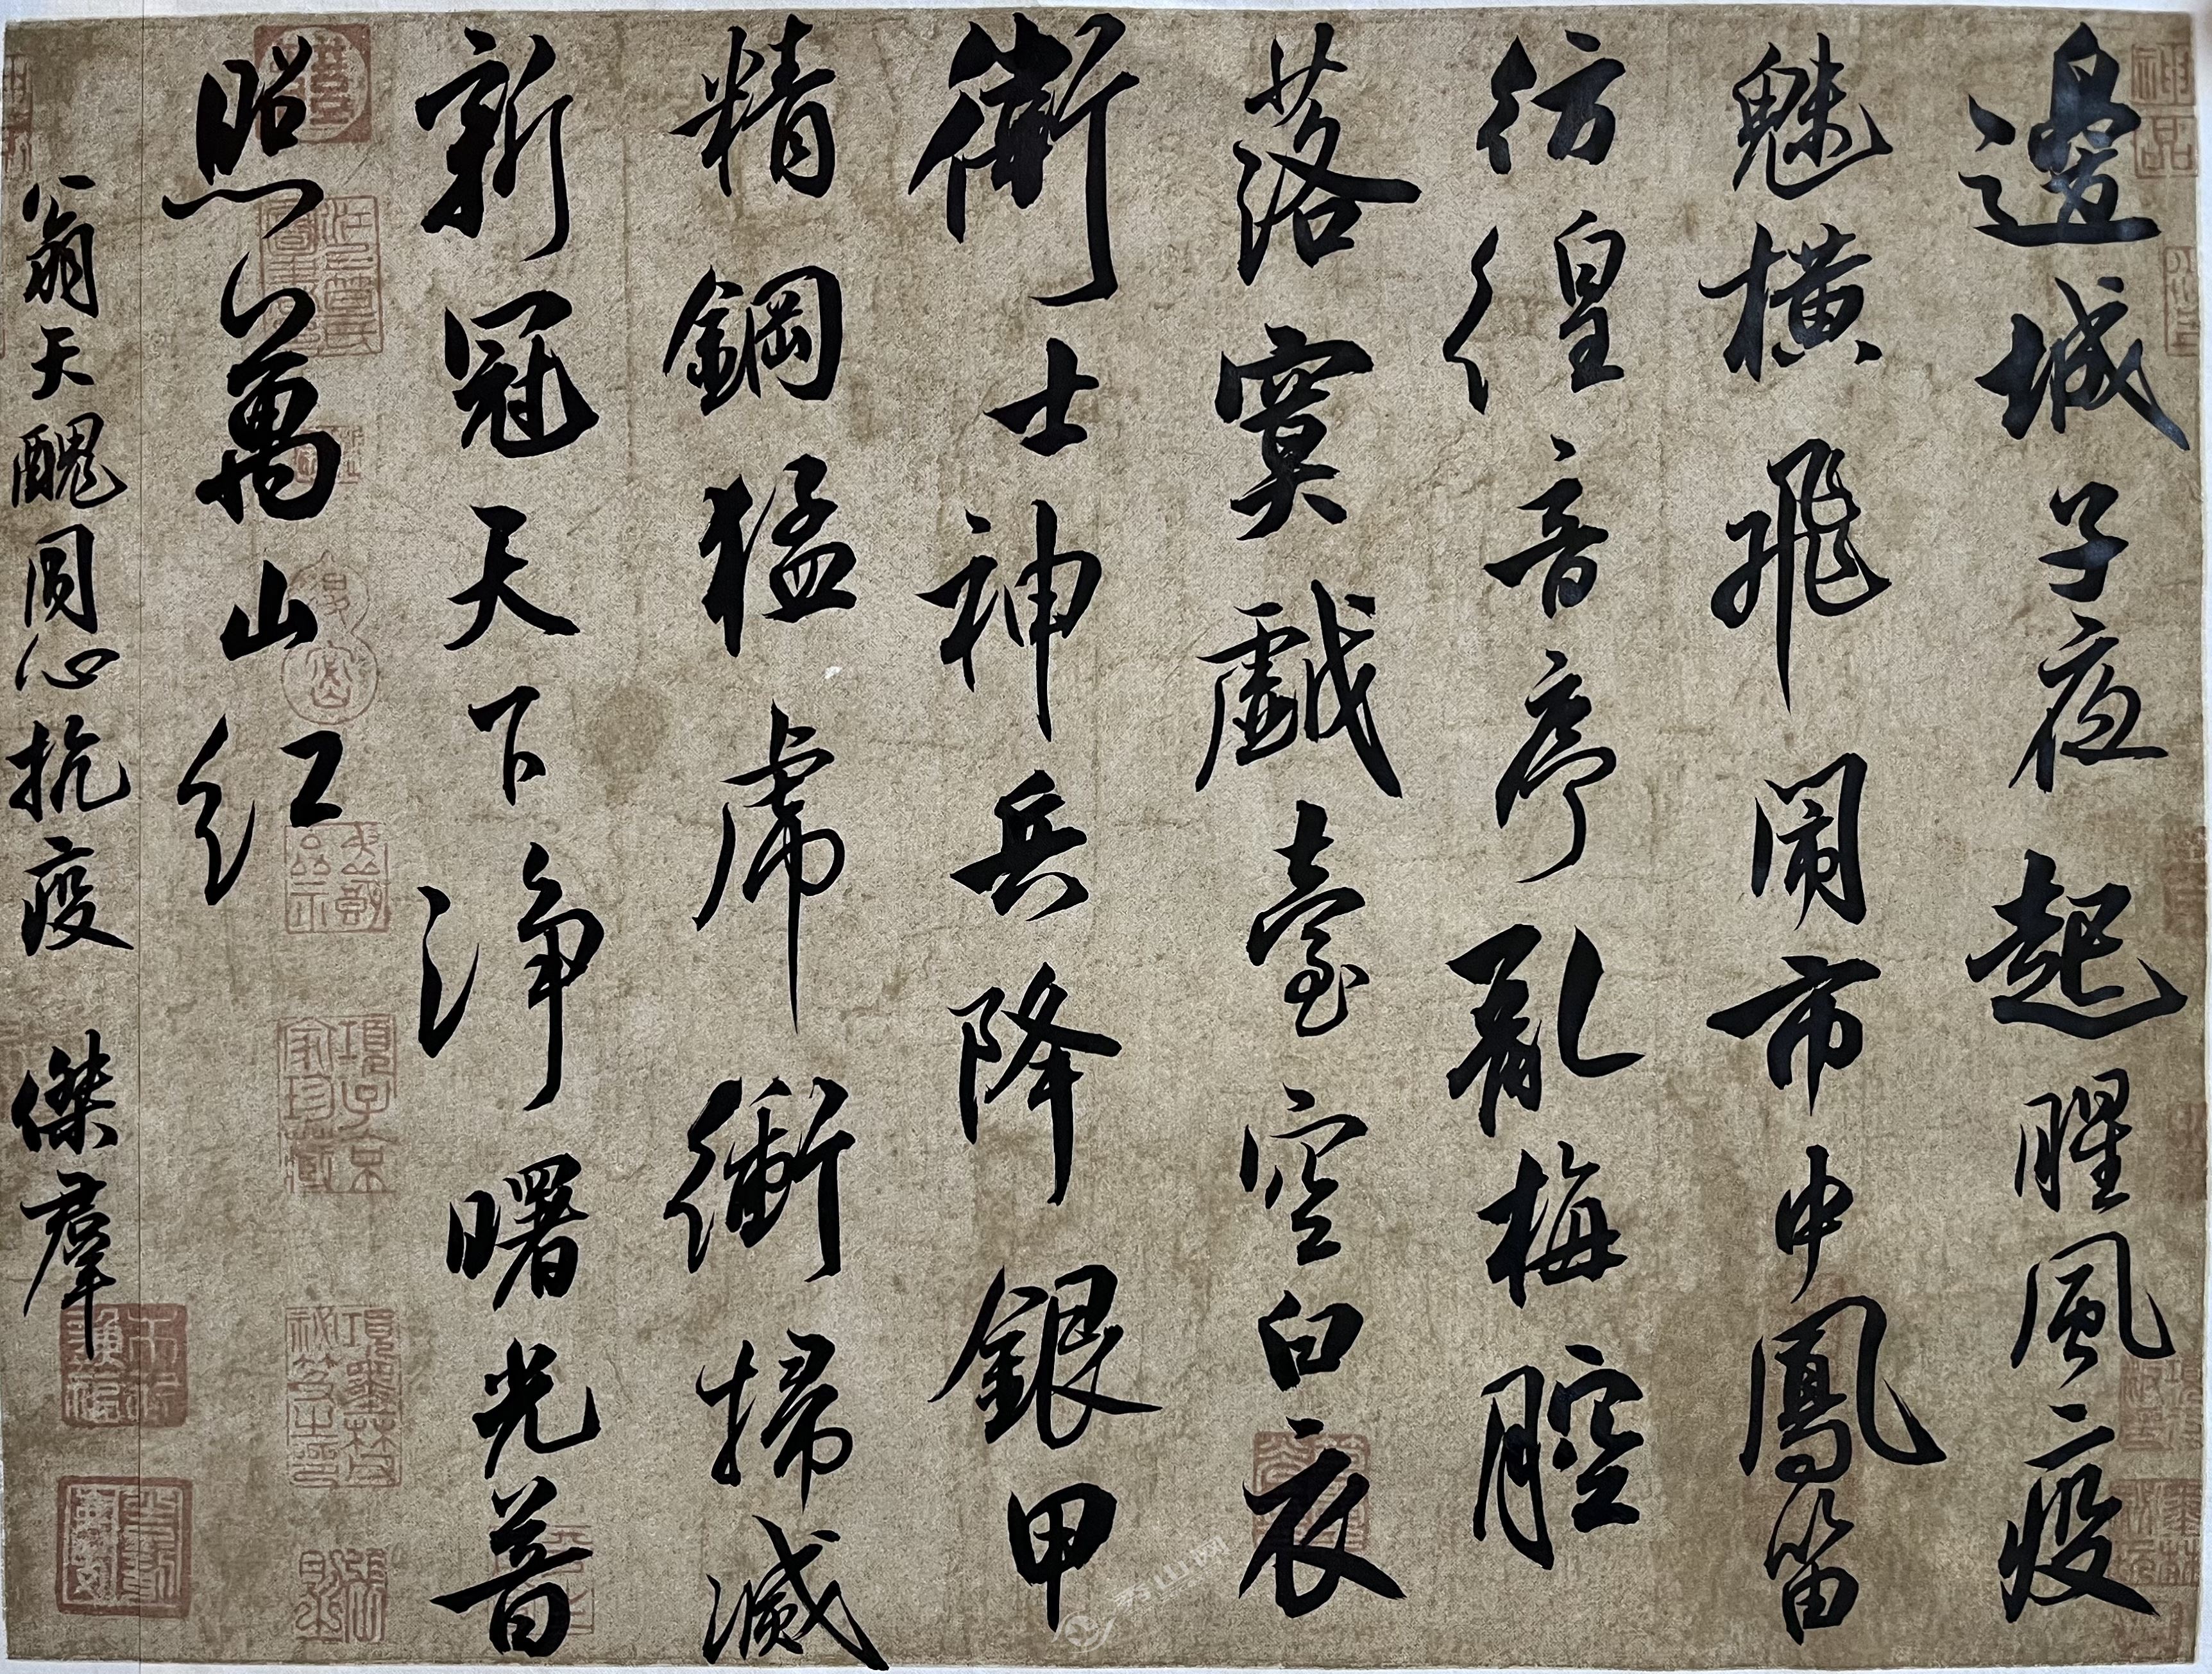 邊城子夜起腥風疫
魅橫飛鬧市中鳳笛
彷徨音序亂梅腔
落寞戲臺空白衣
衛士神兵降銀甲
精鋼猛虎衝掃滅
新冠天下淨曙光普
照萬山紅
翁天醜圓心抗疫 傑羣
秀山网